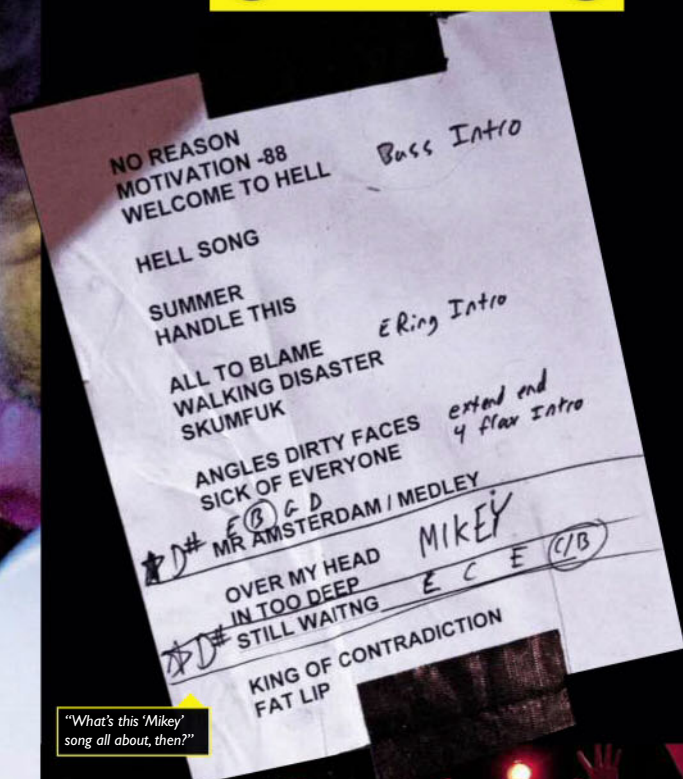 NO REASON
MOTIVATION -88
WELCOME TO HELL
Bass Intro
HELL SONG
SUMMER
HANDLE THIS
E Ring Intro
ALL TO BLAME
WALKING DISASTER
SKUMFUK
ANGLES DIRTY FACES
extend end
SICK OF EVERYONE
4 flax Intro
E B G D
D# MR AMSTERDAM / MEDLEY
OVER MY HEAD
MIKEY
IN TOO DEEP
E C E C/B
D# STILL WAITNG
KING OF CONTRADICTION
FAT LIP
"What's this 'Mikey'
song all about, then?"